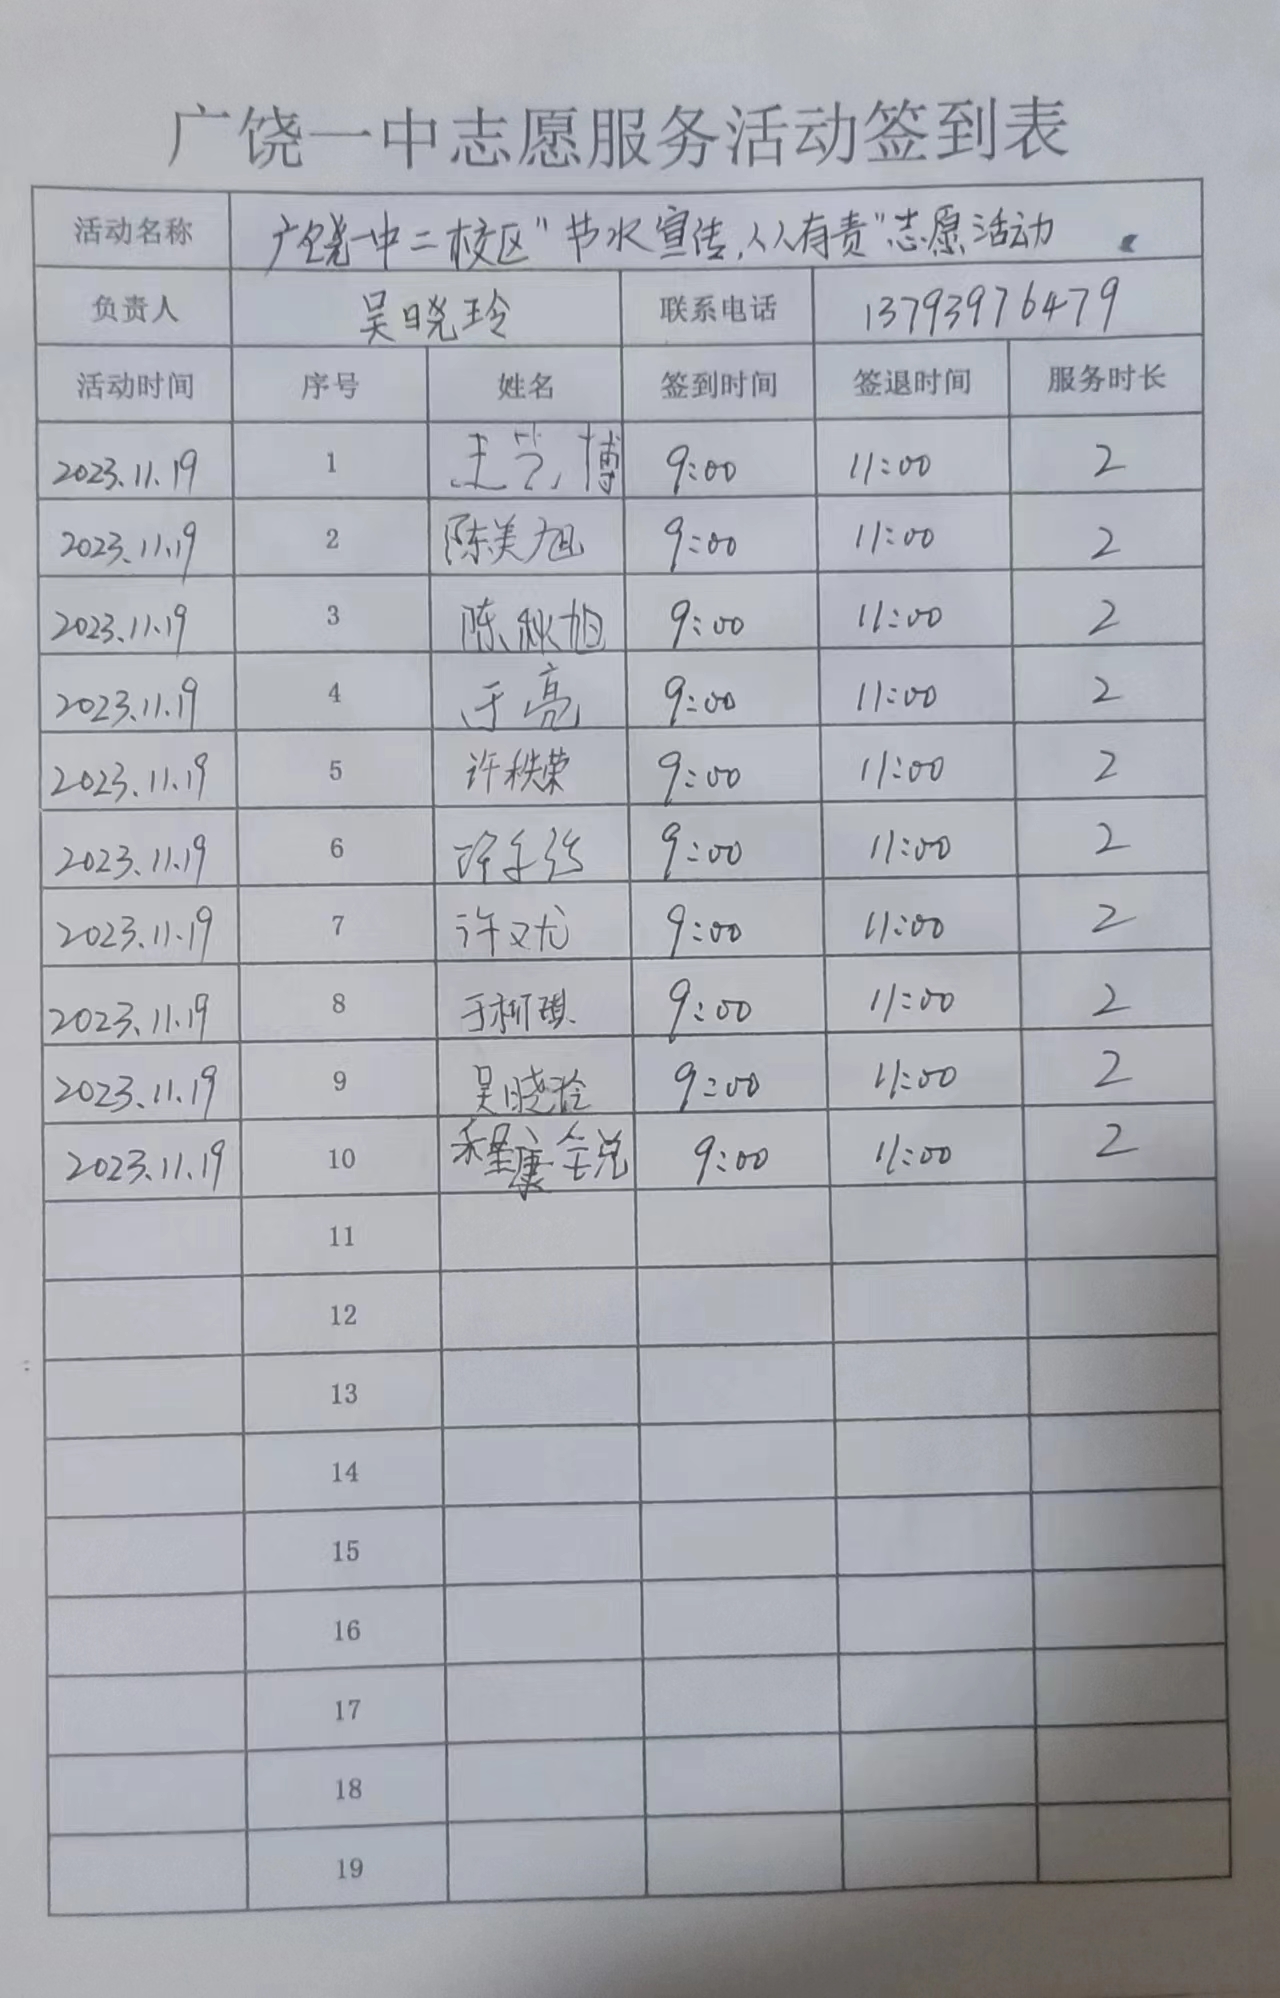 广饶一中志愿服务活动签到表
活动名称 广饶一中二校区"节水宣传,人人有责"志愿活动
负责人 吴晓玲 联系电话 13793976479
活动时间 序号 姓名 签到时间 签退时间 服务时长
2023.11.19 1 王艺博 9:00 11:00 2
2023.11.19 2 陈美旭 9:00 11:00 2
2023.11.19 3 陈秋旭 9:00 11:00 2
2023.11.19 4 于亮 9:00 11:00 2
2023.11.19 5 许秩荣 9:00 11:00 2
2023.11.19 6 9:00 11:00 2
2023.11.19 7 许文尤 9:00 11:00 2
2023.11.19 8 于柯琪 9:00 11:00 2
2023.11.19 9 吴晓玲 9:00 11:00 2
2023.11.19 10 9:00 11:00 2
11
12
13
14
15
16
17
18
19